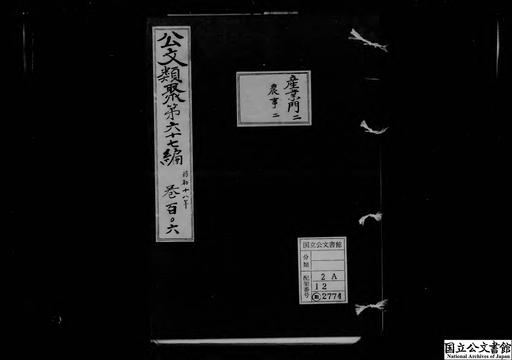 公文類聚第六十七編 昭和十八年 巻百〇六
産業門二
農事二
国立公文書館
分類
配架番号
2 A
12
2774
国立公文書館
National Archives of Japan